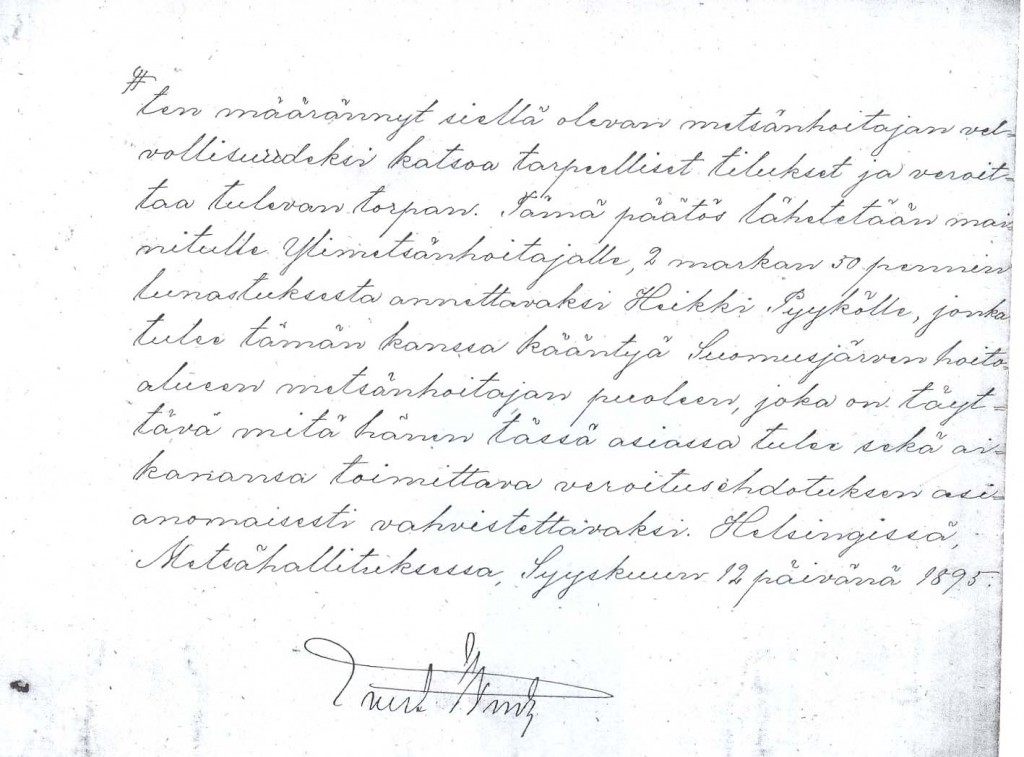 ten määrännyt siellä olevan metsänhoitajan vel=
vollisuudeksi katsoa tarpeelliset tilukset ja veroit=
taa tulevan torpan. Tämä päätös lähetetään mai
nitulle Ylimetsänhoitajalle, 2 markan 50 pennin
lunastuksesta annettavaksi Heikki Pyykölle, jonka
tulee tämän kanssa kääntyä Suomusjärven hoito=
alueen metsänhoitajan puoleen, joka on täyt=
tävä mitä hänen tässä asiassa tulee sekä ai=
kanansa toimittava veroitusehdotuksen asi=
anomaisesti vahvistettavaksi. Helsingissä,
Metsähallituksessa, Syyskuun 12 päivänä 1895.